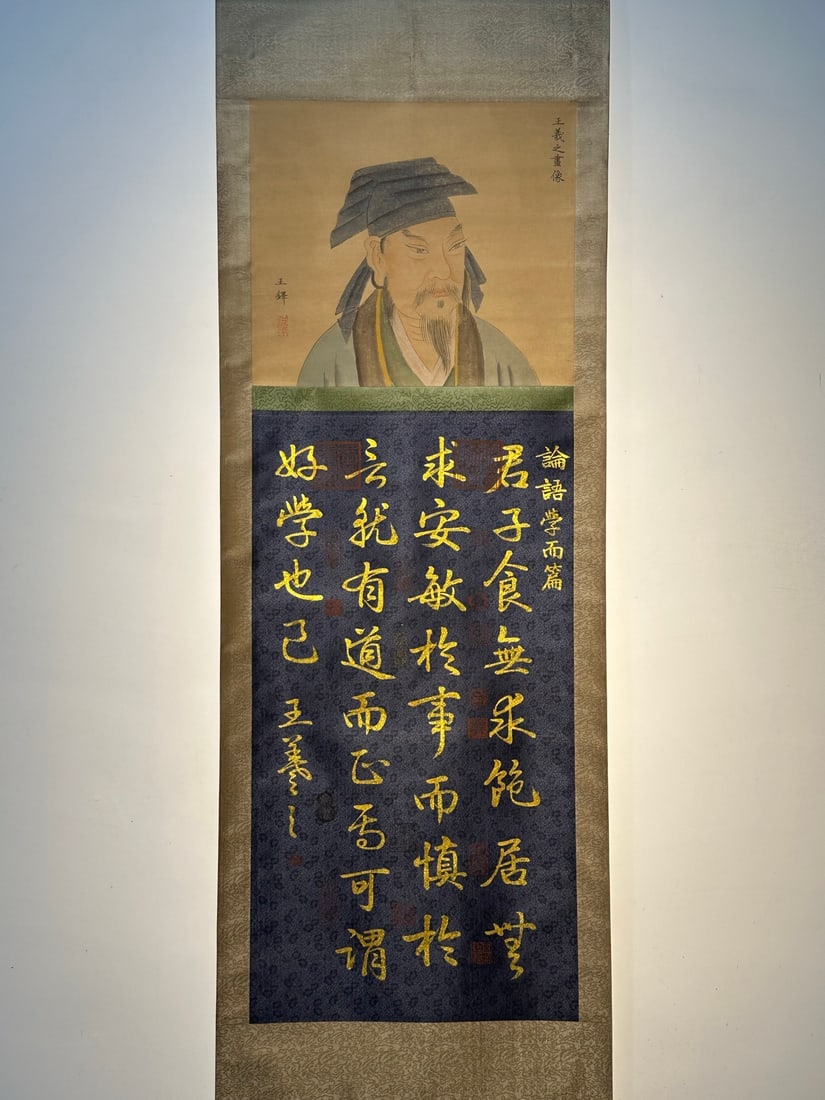 王羲之畫像
王鐸
論語學而篇
君子食無求飽居無
求安敏於事而慎於
言就有道而正焉可謂
好學也已
王羲之